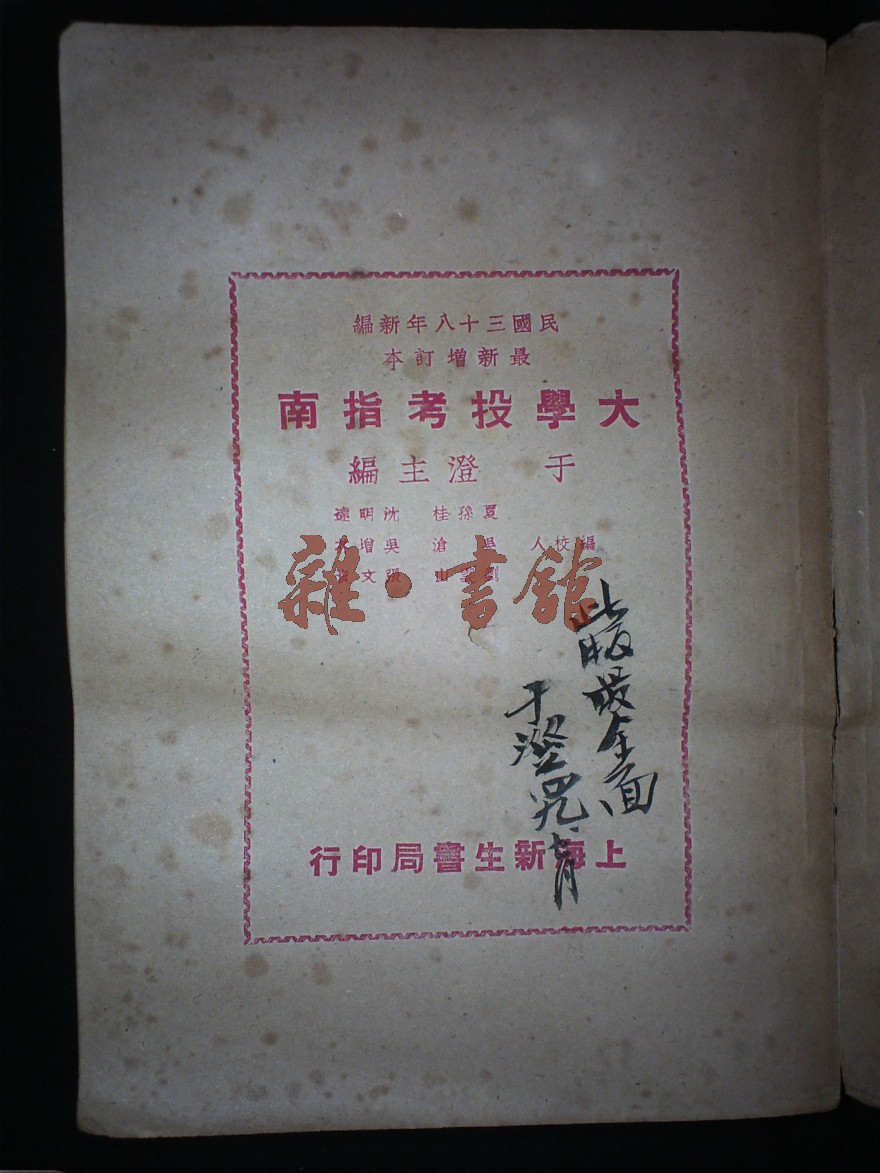 民國三十八年新編
最新增訂本
大學投考指南
于澄主編
夏孫桂 沈明達
編校人 吳滄 吳增
劉 山 張文
雜·書舘
此版最全面
于澄
七月
上海新生書局印行